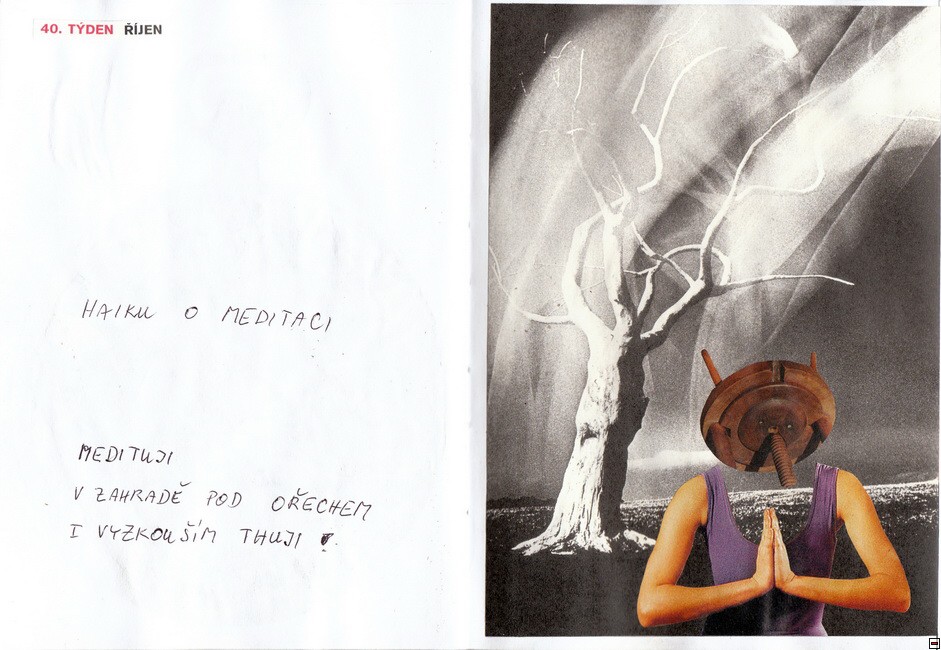 40. TÝDEN ŘÍJEN
HAIKU O MEDITACI
MEDITUJI
V ZAHRADĚ POD OŘECHEM
I VYZKOUŠÍM THUJI !